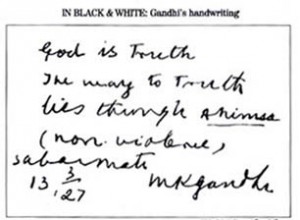 IN BLACK & WHITE: Gandhi's handwriting
God is Truth
The way to Truth
lies through ahimsa
(non-violence)
Sabarmati
13 3/27 MKGandhi